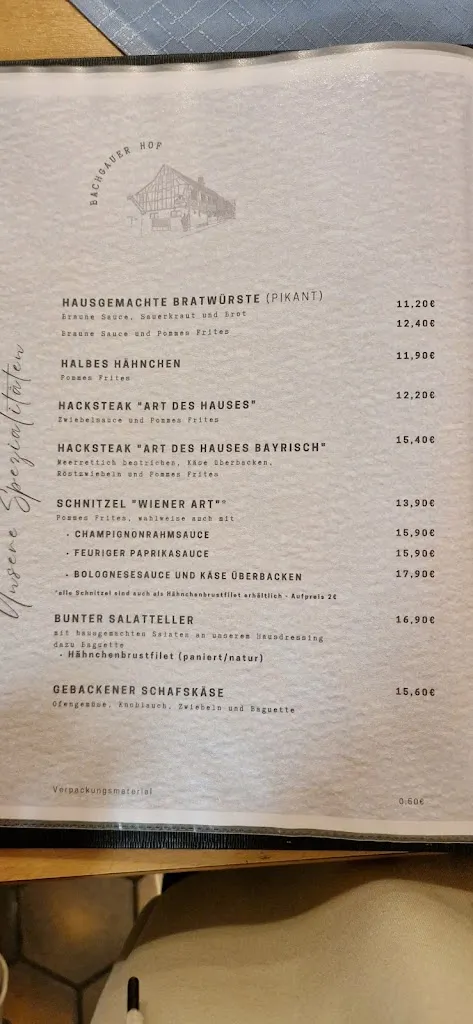 BACHGAUER HOF
Unsere Spezialitäten
HAUSGEMACHTE BRATWÜRSTE (PIKANT) 11,20€
Braune Sauce, Sauerkraut und Brot
Braune Sauce und Pommes Frites 12,40€
HALBES HÄHNCHEN 11,90€
Pommes Frites
HACKSTEAK "ART DES HAUSES" 12,20€
Zwiebelsauce und Pommes Frites
HACKSTEAK "ART DES HAUSES BAYRISCH" 15,40€
Meerrettich bestrichen, Käse überbacken,
Röstzwiebeln und Pommes Frites
SCHNITZEL "WIENER ART"* 13,90€
Pommes Frites, wahlweise auch mit
• CHAMPIGNONRAHMSAUCE 15,90€
• FEURIGER PAPRIKASAUCE 15,90€
• BOLOGNESESAUCE UND KÄSE ÜBERBACKEN 17,90€
*alle Schnitzel sind auch als Hähnchenbrustfilet erhältlich - Aufpreis 2€
BUNTER SALATTELLER 16,90€
mit hausgemachten Salaten an unserem Hausdressing
dazu Baguette
• Hähnchenbrustfilet (paniert/natur)
GEBACKENER SCHAFSKÄSE 15,60€
Ofengemüse, Knoblauch, Zwiebeln und Baguette
Verpackungsmaterial 0,60€